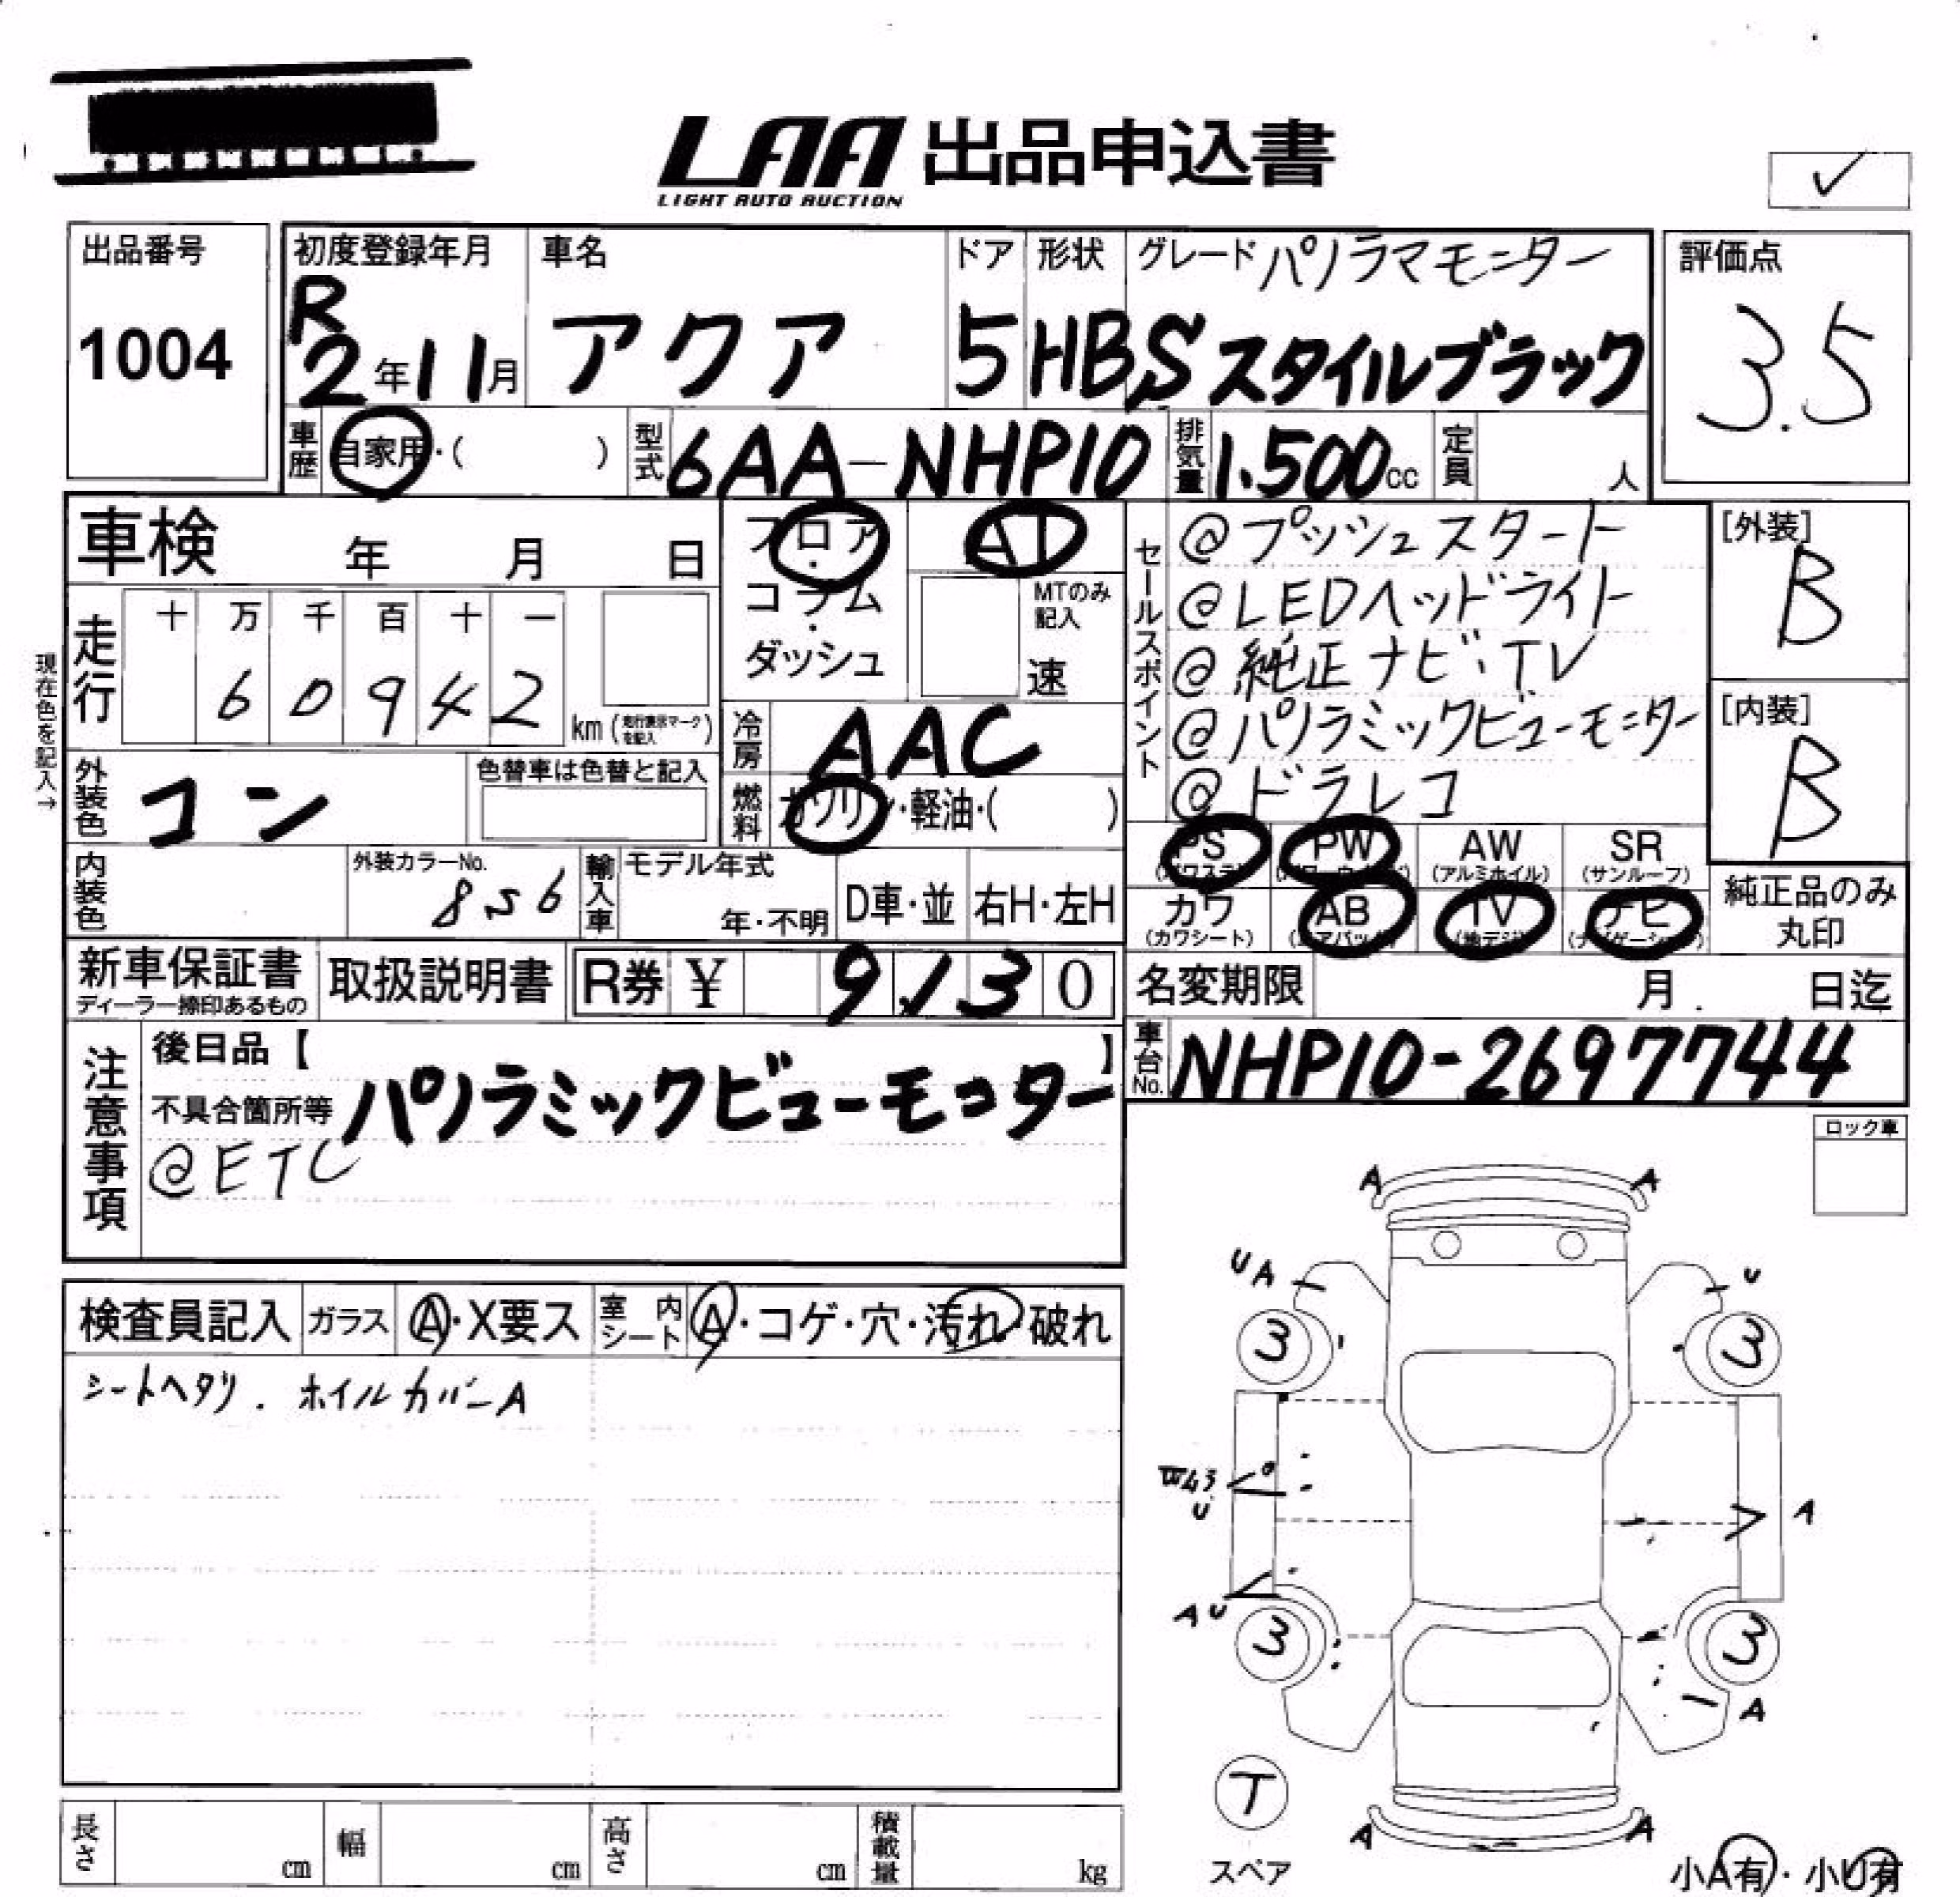 LAA 出品申込書
LIGHT AUTO AUCTION
✓
出品番号
1004
初度登録年月
R
2年11月
車名
アクア
ドア
5
形状
HB
グレード パノラマモニター
Sスタイルブラック
評価点
3.5
車歴
自家用・( )
型式
6AA-NHP10
排気量
1.500cc
定員
人
車検 年 月 日
フロア・コラム・ダッシュ
AT
MTのみ記入
速
現在色を記入→
走行
十 万 千 百 十 一
6 0 9 4 2
km (走行表示マークを記入)
冷房
AAC
外装色
コン
色替車は色替と記入
燃料
ガソリン・軽油・( )
内装色
外装カラーNo.
856
輸入車
モデル年式
年・不明
D車・並
右H・左H
セールスポイント
@プッシュスタート
@LEDヘッドライト
@純正ナビ・TV
@パノラミックビューモニター
@ドラレコ
[外装]
B
[内装]
B
PS
PW
AW
(アルミホイル)
SR
(サンルーフ)
カワ
(カワシート)
AB
TV
(地デジ)
ナビ
純正品のみ
丸印
新車保証書
ディーラー捺印あるもの
取扱説明書
R券 ¥ 9130
名変期限 月 日迄
車台No.
NHP10-2697744
注意事項
後日品【 】
不具合箇所等
パノラミックビューモニター
@ETC
ロック車
検査員記入
ガラス
A・X要ス
室内シート
A・コゲ・穴・汚れ・破れ
シートヘタリ. ホイルカバーA
A A
UA U
3 3
W43
U
A
AU
3 3
A
T
スペア
A A
小A有・小U有
長さ cm
幅 cm
高さ cm
積載量 kg